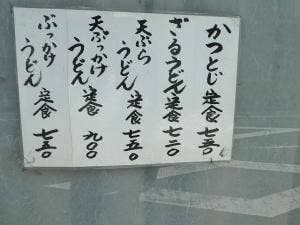 かつとじ定食 七五〇
ざるうどん定食 七二〇
天ぷらうどん定食 七五〇
天ぶっかけうどん定食 九〇〇
ぶっかけうどん定食 七五〇